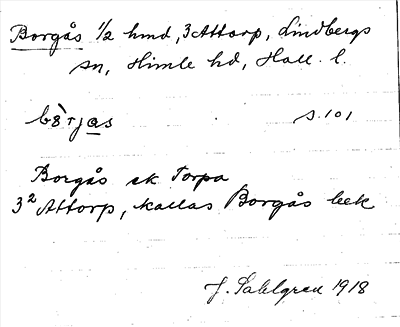 Borgås 1/2 hmd, 3 Attorp, Lindbergs
sn, Himle hd, Hall. l.
bòrjas s. 101
Borgås sk Torpa
3² Attorp, kallas Borgås bek
J. Sahlgren 1918